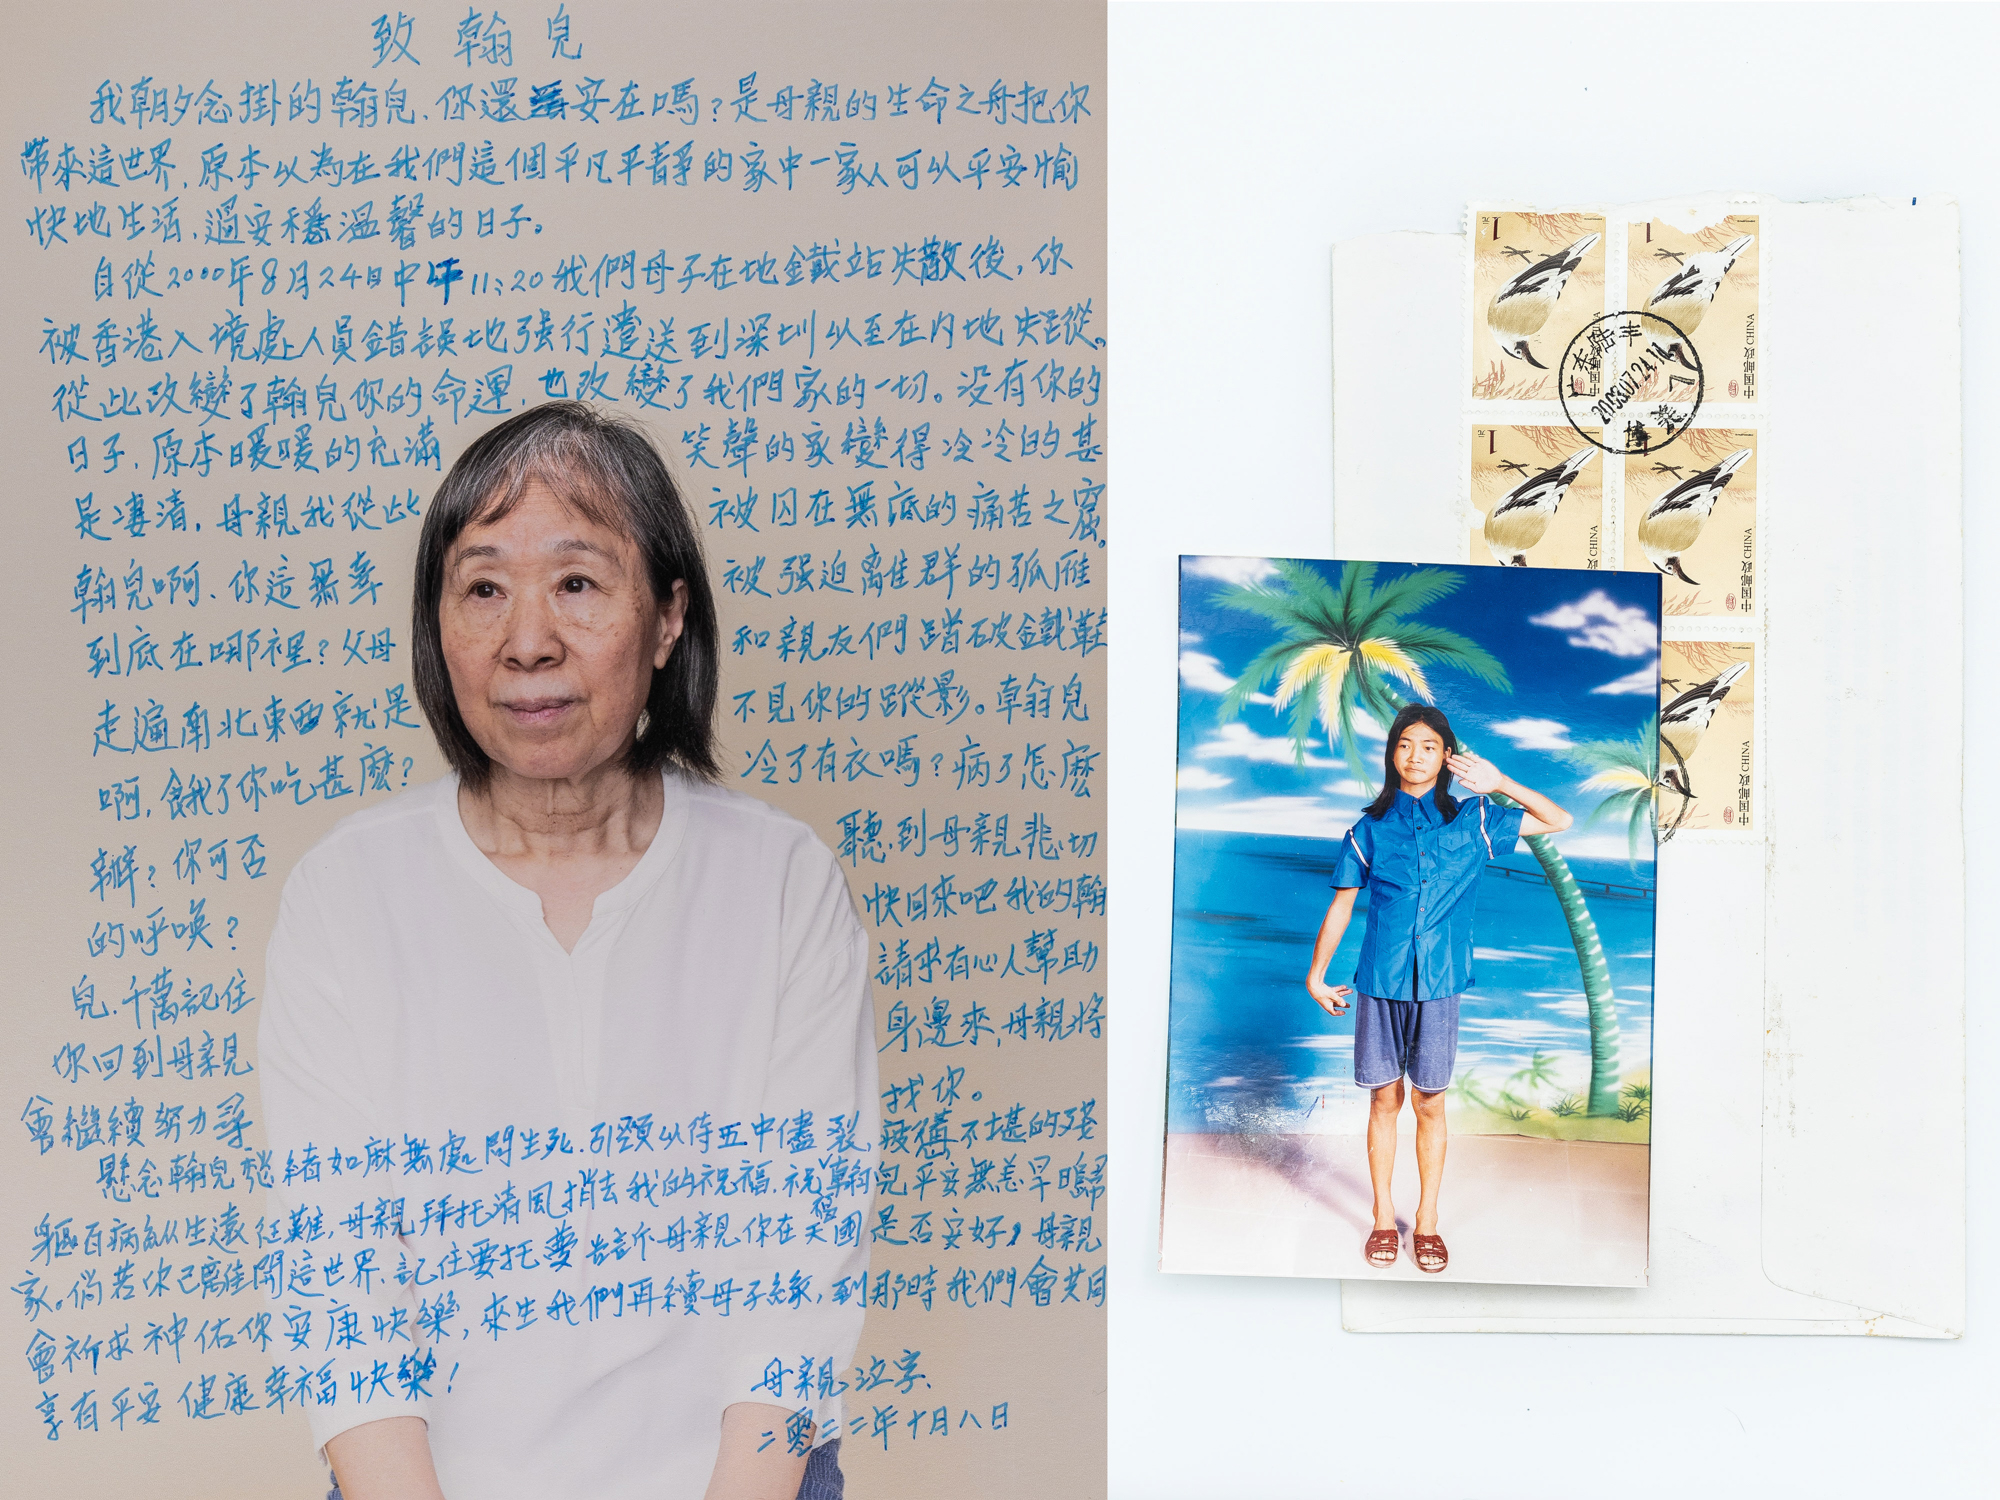 致翰兒
我朝夕念掛的翰兒、你還安在嗎？是母親的生命之舟把你
帶來這世界，原本以為在我們這個平凡平靜的家中一家人可以平安愉
快地生活，過安穩溫馨的日子。
自從2000年8月24日中午11:20我們母子在地鐵站失散後，你
被香港入境處人員錯誤地強行遣送到深圳以至在內地失蹤。
從此改變了翰兒你的命運，也改變了我們家的一切。没有你的
日子，原本暖暖的充滿 笑聲的家變得冷冷的甚
是凄清，母親我從此 被囚在無底的痛苦之窟。
翰兒啊、你這無辜 被强迫離群的孤雁
到底在哪裡？父母 和親友們踏破鐵鞋
走遍南北東西就是 不見你的蹤影。翰兒
啊，餓了你吃甚麼？ 冷了有衣嗎？病了怎麼
辦？你可否 聽到母親悲切
的呼喚？ 快回來吧我的翰
兒，千萬記住 請求有心人幫助
你回到母親 身邊來，母親將
會繼續努力尋 找你。
懸念翰兒愁緒如麻無處問生死，引頸以待五中儘裂，疲憊不堪的殘
軀百病叢生遠征難，母親拜托清風捎去我的祝福，祝翰兒平安無恙早日歸
家。倘若你已離開這世界，記住要托夢告訴母親你在天國是否安好，母親
會祈求神佑你安康快樂，來生我們再續母子緣，到那時我們會共同
享有平安健康幸福快樂！
母親泣字、
二零二二年十月八日
1元
1
中国邮政 CHINA
中国邮政 CHINA
1元
1
中国邮政 CHINA
中国邮政 CHINA
中国邮政 CHINA